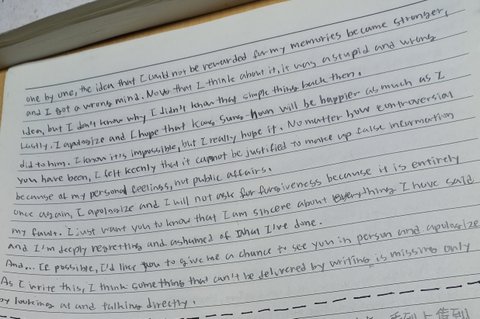 one by one, the idea that I could not be rewarded for my memories became stronger,
and I got a wrong mind. Now that I think about it, it was a stupid and wrong
idea, but I don't know why I didn't know that simple thing back then.
Lastly, I apologize and I hope that Kang Sung-hoon will be happier as much as I
did to him. I know it's impossible, but I really hope it. No matter how controversial
you have been, I felt keenly that it cannot be justified to make up false information
because of my personal feelings, not public affairs.
Once again, I apologize and I will not ask for forgiveness because it is entirely
my fault. I just want you to know that I am sincere about everything I have said
and I'm deeply regretting and ashamed of what I've done.
And... If possible, I'd like you to give me a chance to see you in person and apologize
As I write this, I think something that can't be delivered by writing is missing only
by looking at and talking directly.